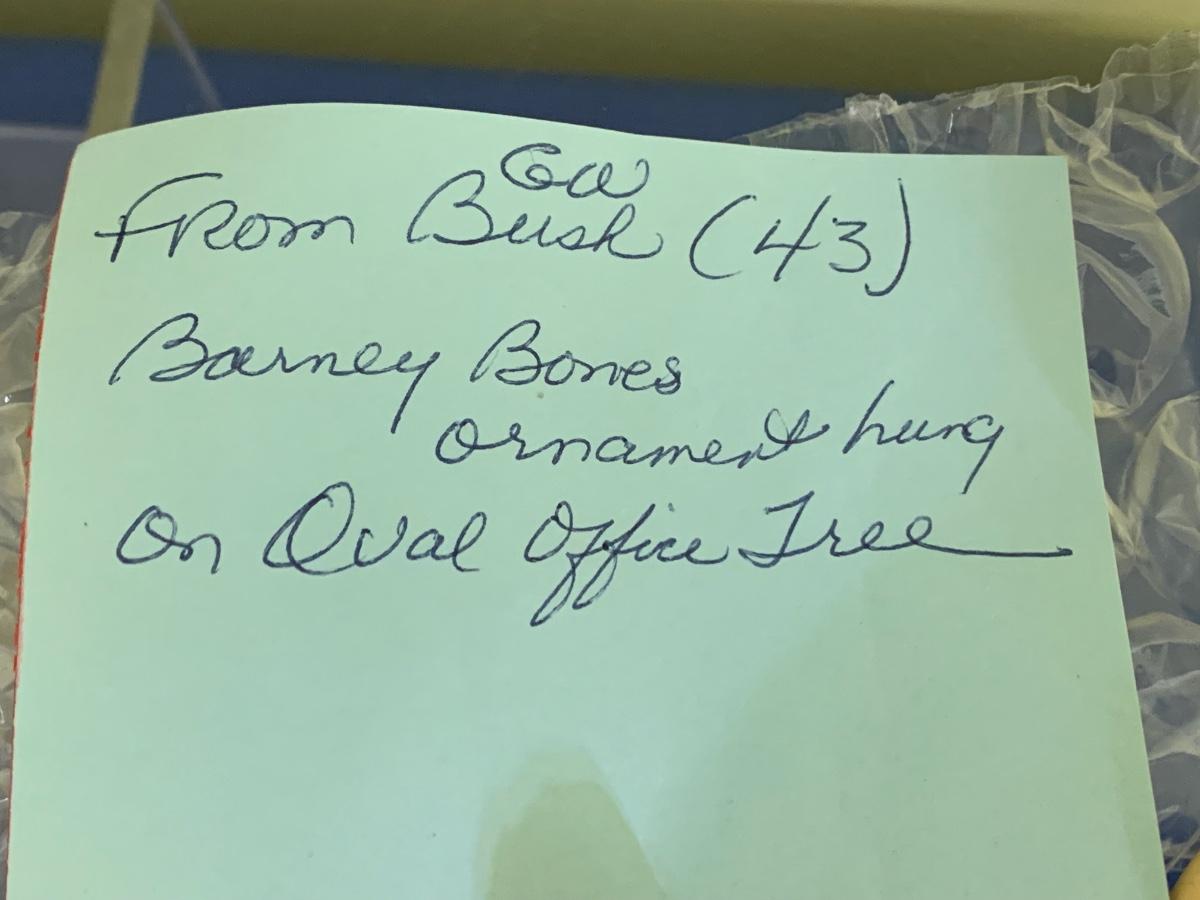 GW
From Bush (43)
Barney Bones
ornament hung
on Oval Office Tree